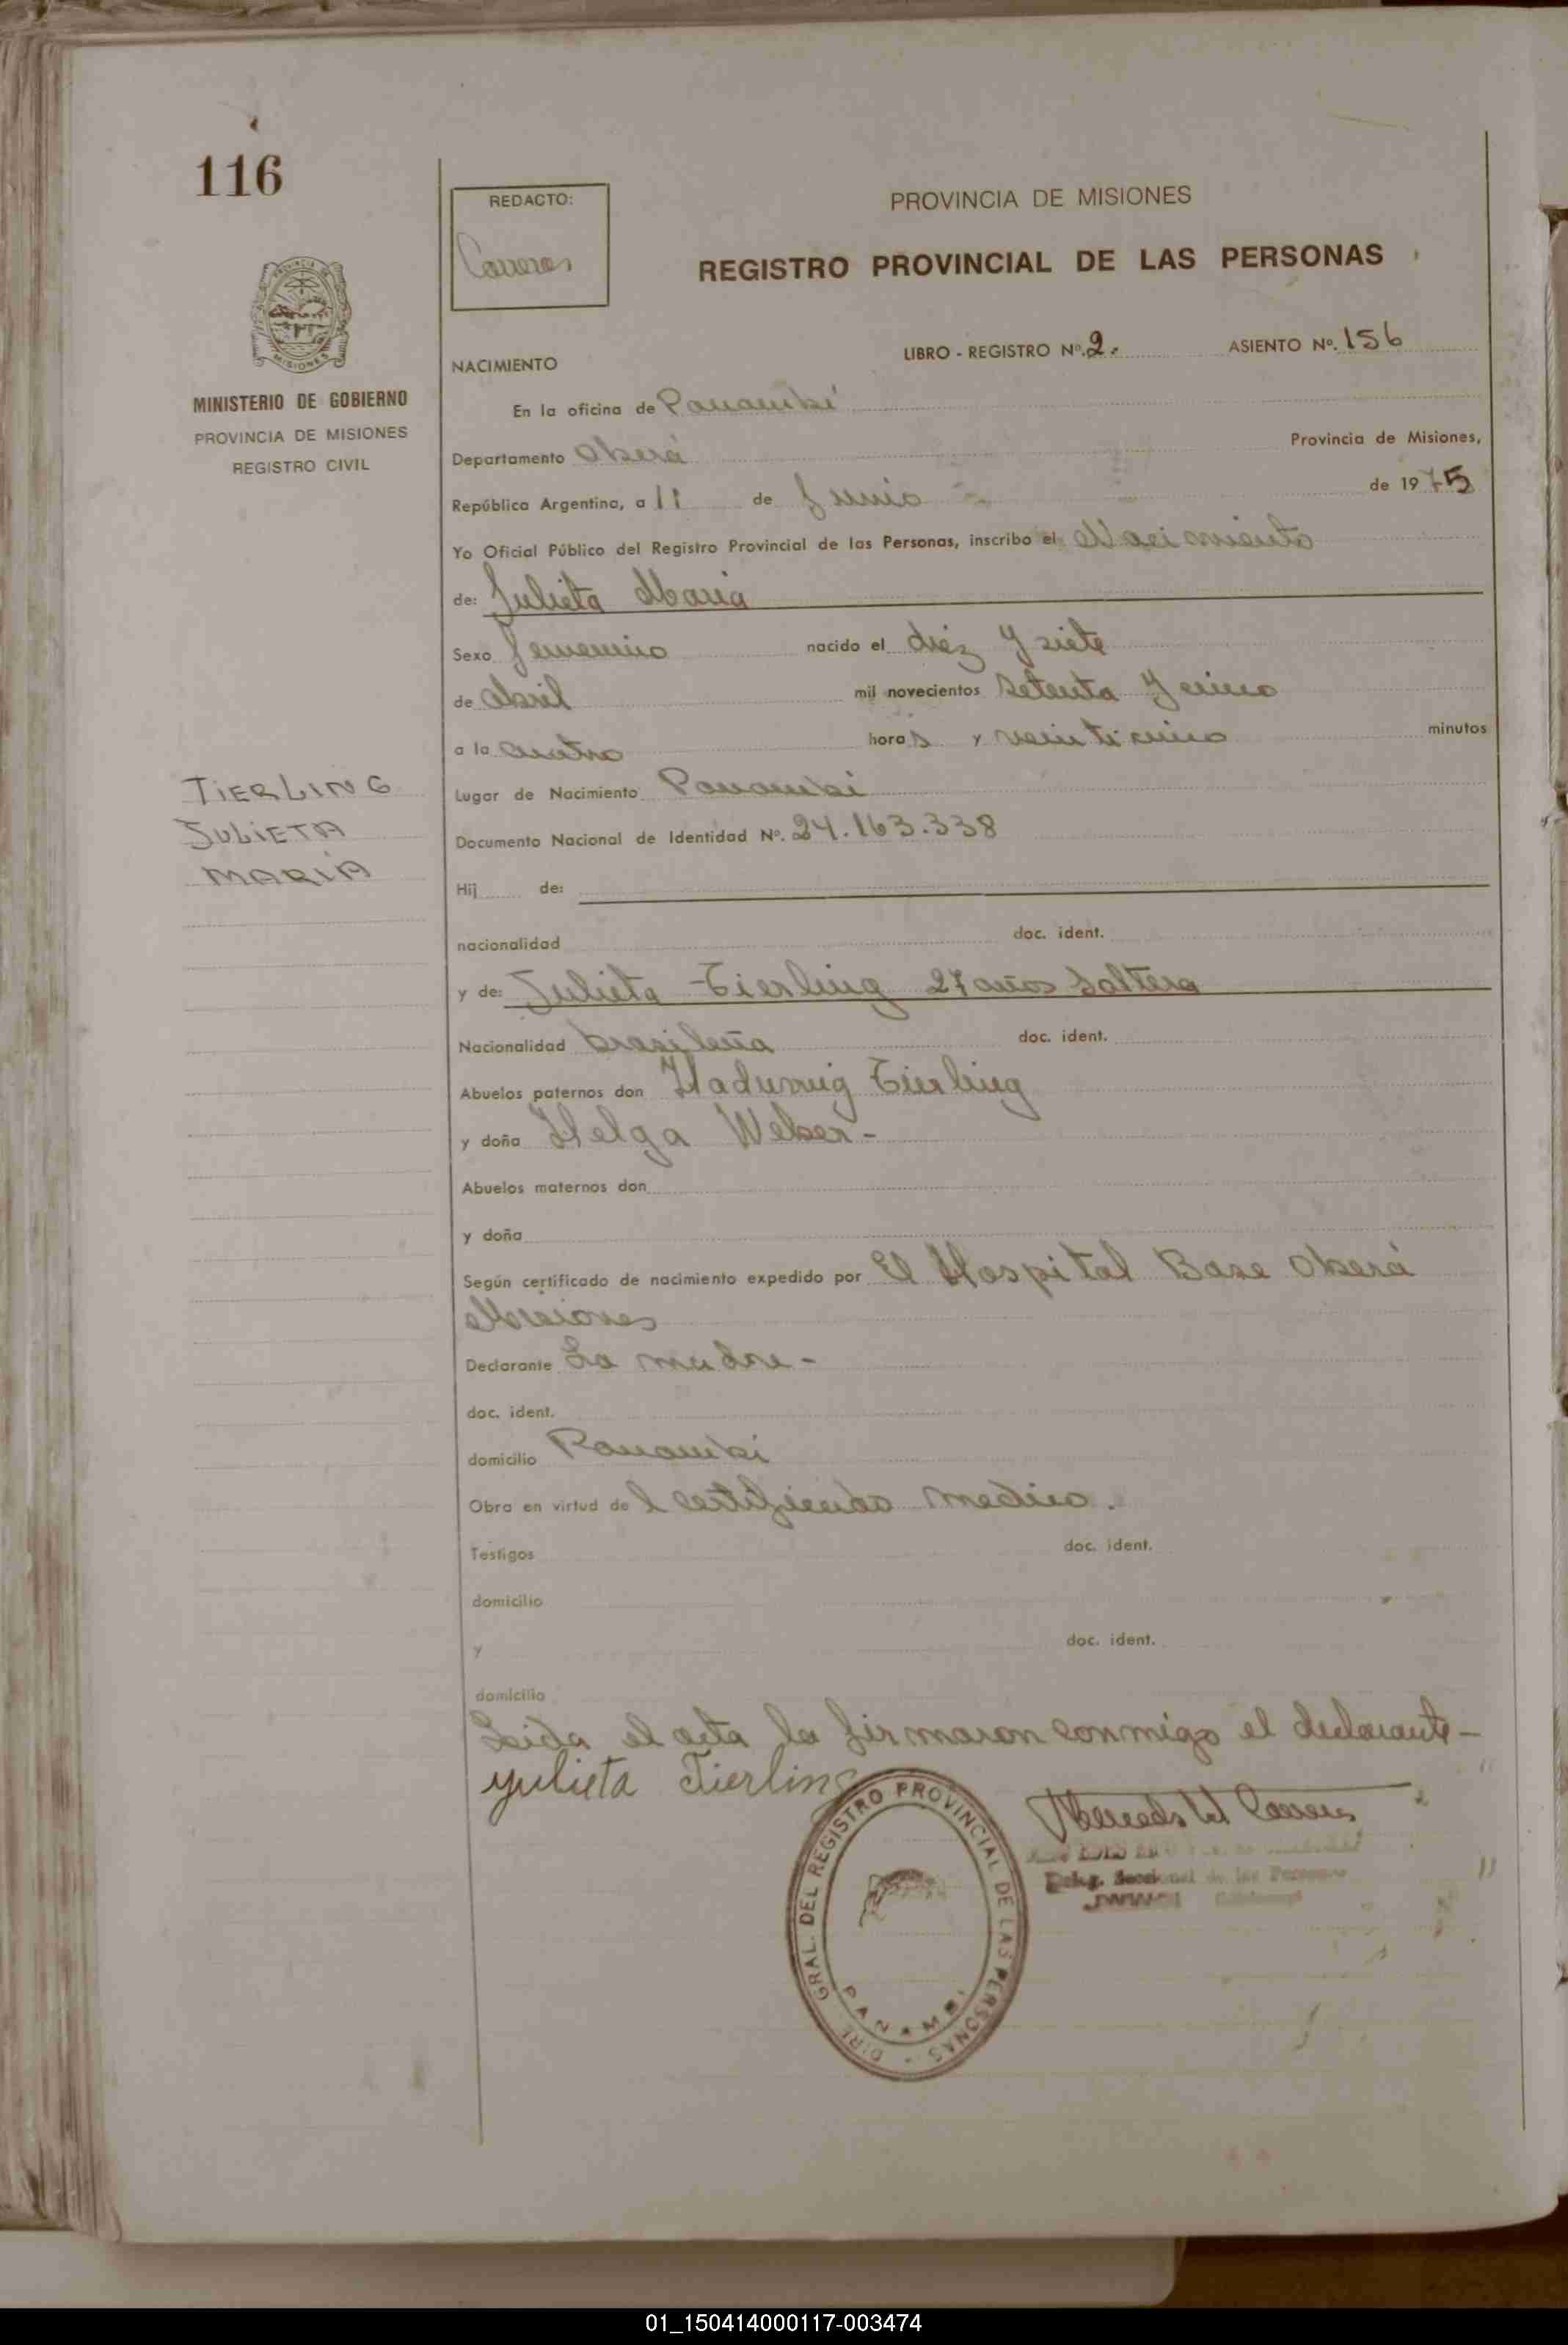 116
REDACTO:
Carreras
PROVINCIA DE MISIONES
REGISTRO PROVINCIAL DE LAS PERSONAS
MISIONES
MINISTERIO DE GOBIERNO
PROVINCIA DE MISIONES
REGISTRO CIVIL
LIBRO - REGISTRO Nº. 2. ASIENTO Nº. 156
NACIMIENTO
En la oficina de Panambí
Departamento Oberá Provincia de Misiones,
República Argentina, a 11 de Junio de 1975
Yo Oficial Público del Registro Provincial de las Personas, inscribo el Nacimiento
de: Julieta Maria
Sexo femenino nacido el diéz y siete
de Abril mil novecientos setenta y cinco
a la cuatro horas y veinticinco minutos
Lugar de Nacimiento Panambi
Documento Nacional de Identidad Nº. 24.163.338
TIERLING
JULIETA
MARIA
Hij de:
nacionalidad doc. ident.
y de: Julieta Tierling 27 años Soltera
Nacionalidad brasileña doc. ident.
Abuelos paternos don Tierling
y doña Helga Weber -
Abuelos maternos don
y doña
Según certificado de nacimiento expedido por El Hospital Base Oberá
Misiones
Declarante La madre -
doc. ident.
domicilio Panambi
Obra en virtud de l certificado medico.
Testigos doc. ident.
domicilio
y doc. ident.
domicilio
Leida el acta la firmaron conmigo el declarante -
Yulieta Tierling
DIRE. GRAL. DEL REGISTRO PROVINCIAL DE LAS PERSONAS -
PANAMBI
01_150414000117-003474